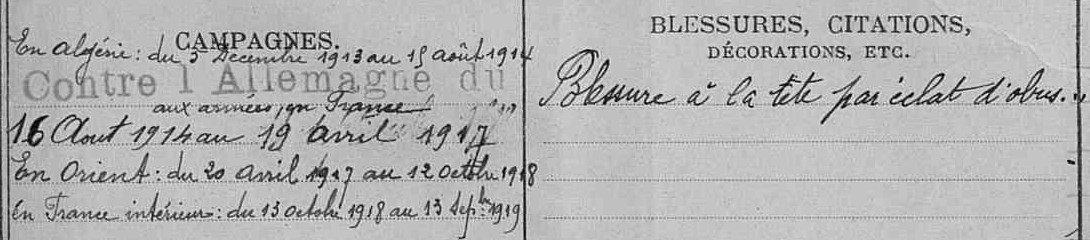 CAMPAGNES.
En Algérie : du 5 Décembre 1913 au 15 août 1914
Contre l'Allemagne du
aux armées, en France
16 Aout 1914 au 19 avril 1917
En Orient : du 20 avril 1917 au 12 octobre 1918
en France intérieur : du 13 octobre 1918 au 13 Sepbre 1919
BLESSURES, CITATIONS,
DÉCORATIONS, ETC.
Blessure à la tête par éclat d'obus.